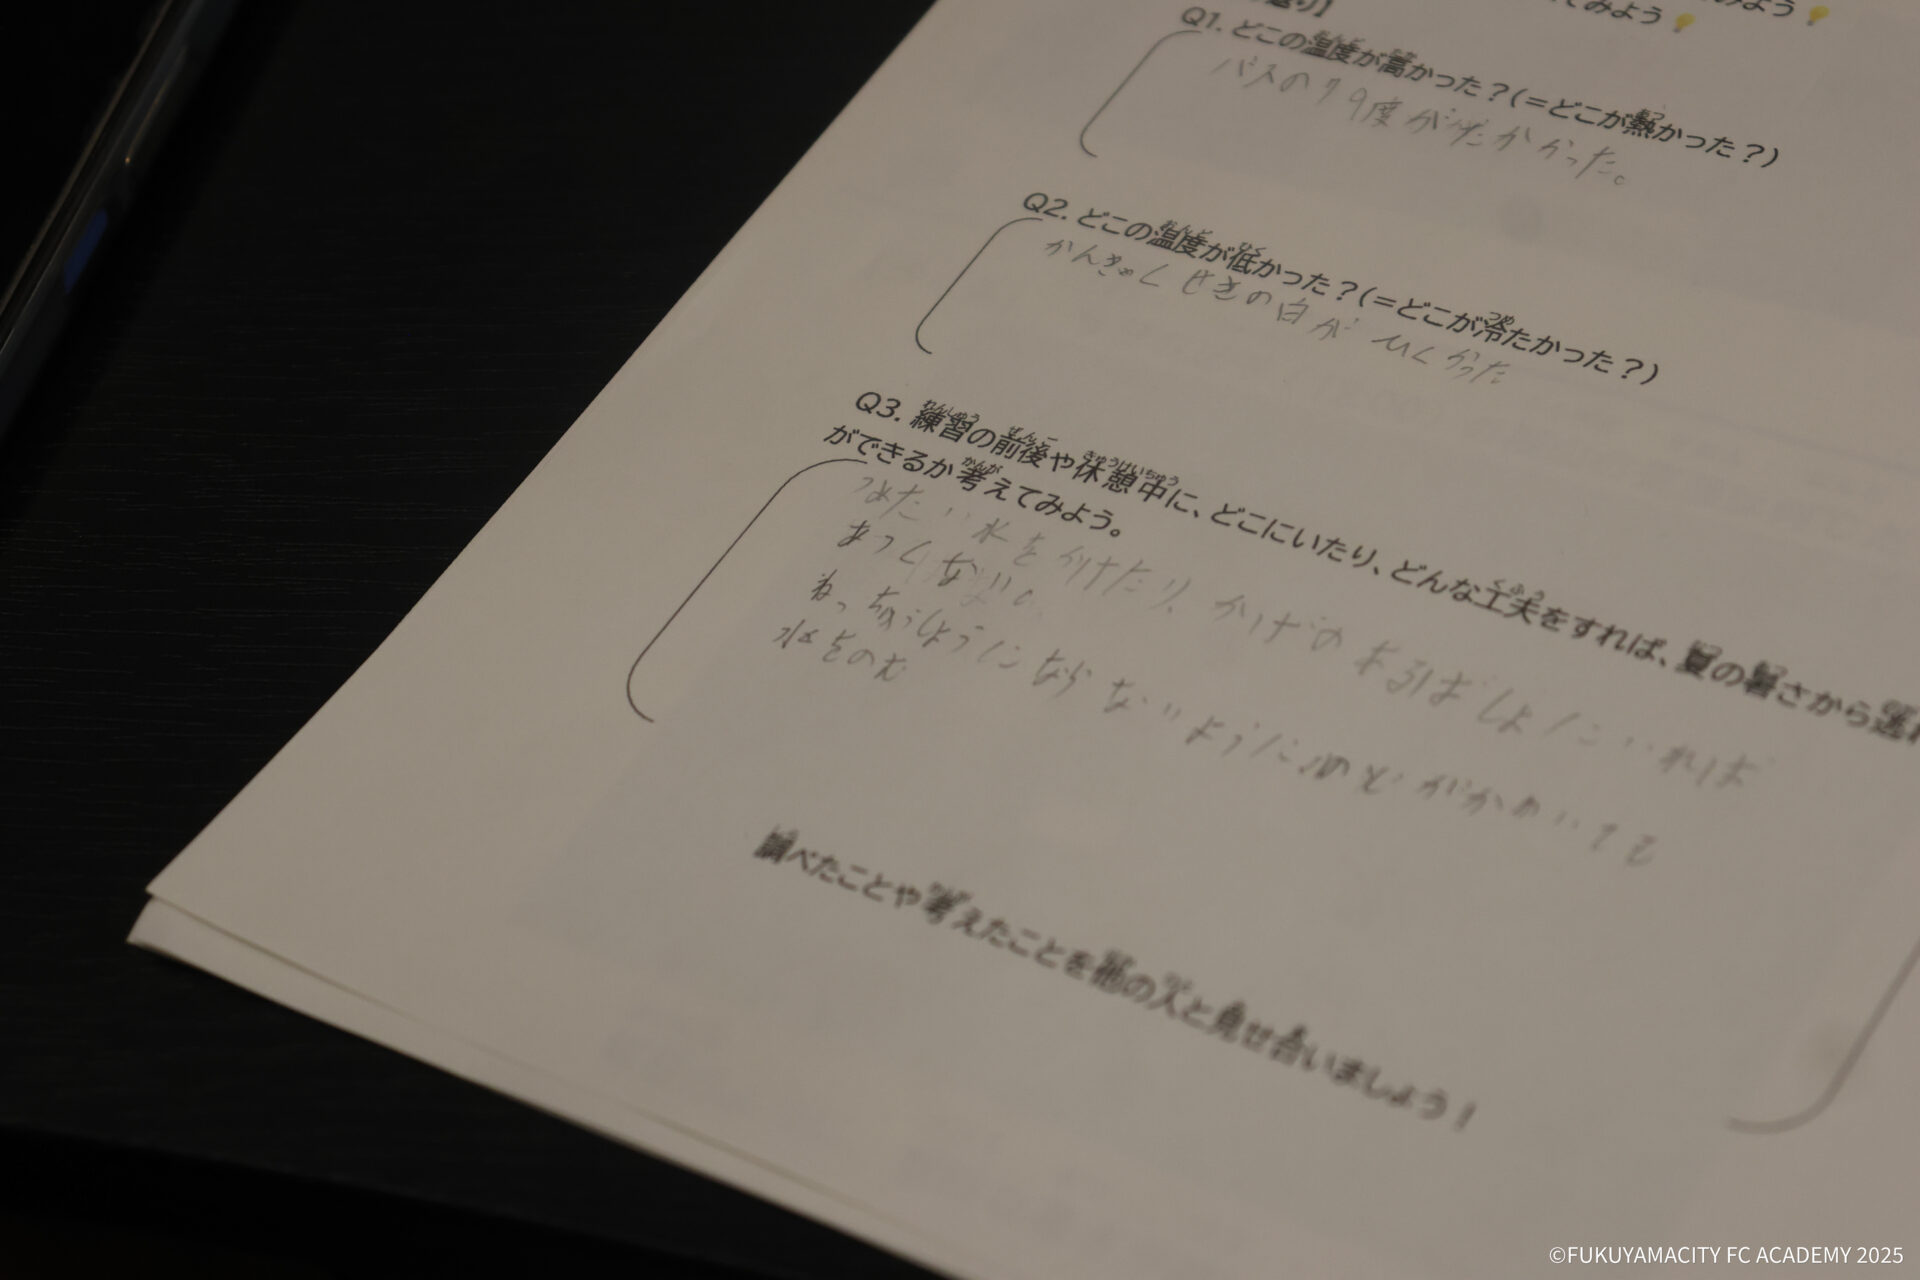 てみよう
みよう
返り】
Q1. どこの温度が高かった？(＝どこが熱かった？)
バスの79度がたかかった。
Q2. どこの温度が低かった？(＝どこが冷たかった？)
かんきゃくせきの白がひくかった
Q3. 練習の前後や休憩中に、どこにいたり、どんな工夫をすれば、夏の暑さから逃れ
ができるか考えてみよう。
つめたい水をかけたり、かげのある ばしょにいれば
あつくない。
ねっちゅうしょうにならないようにのどがかわいてて
水をのむ
調べたことや考えたことを他の人と見せ合いましょう！
©FUKUYAMACITY FC ACADEMY 2025